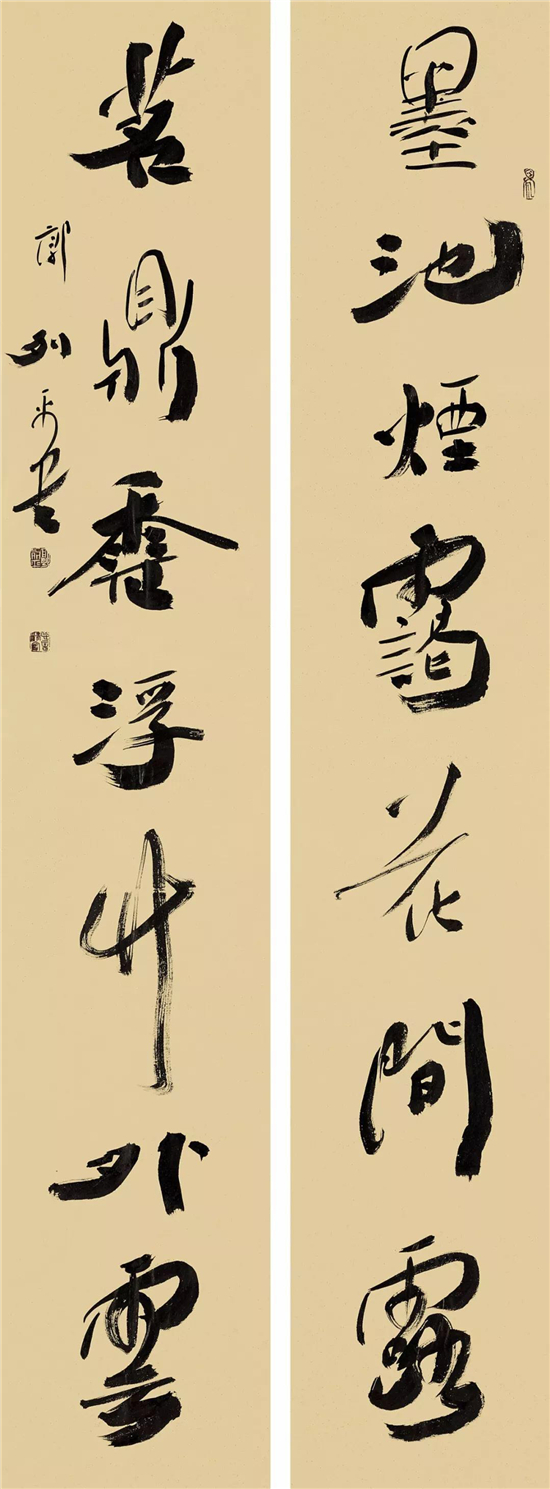 墨池煙靄花間露
茗鼎香浮竹外雲
郭列平書